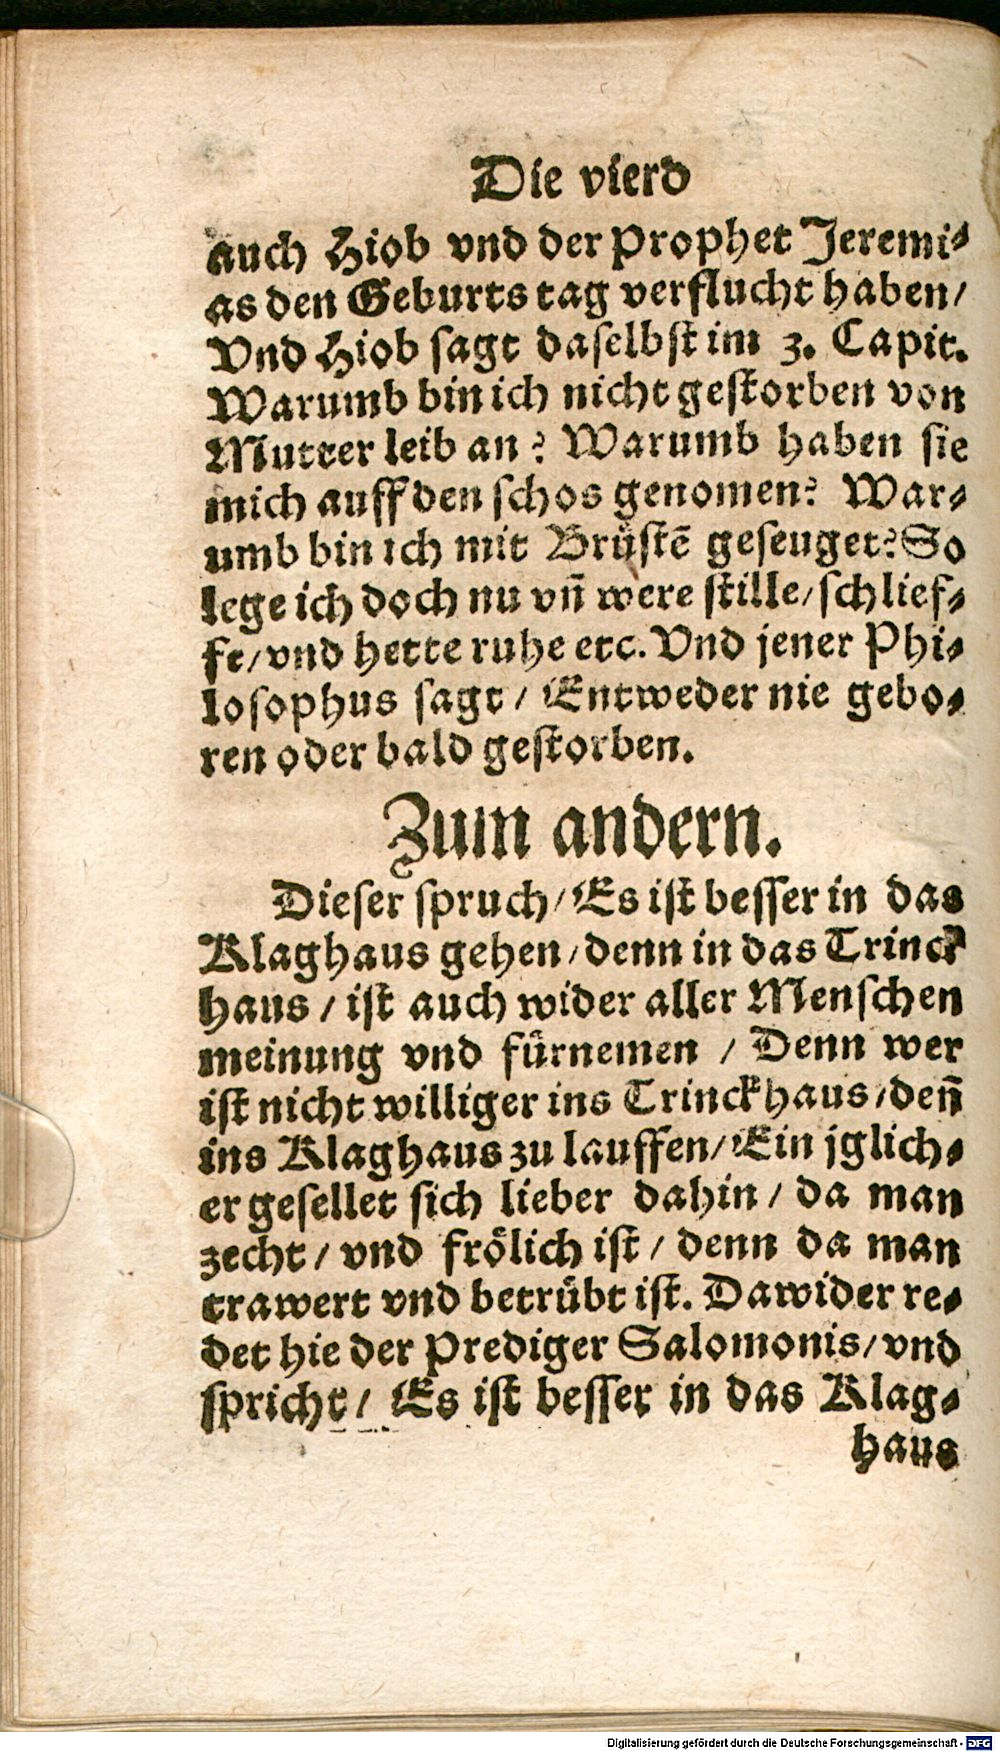 Die vierd
auch Hiob vnd der Prophet Jeremi⸗
as den Geburts tag verflucht haben/
Vnd Hiob sagt daselbst im 3. Capit.
Warumb bin ich nicht gestorben von
Mutter leib an? Warumb haben sie
mich auff den schos genomen? War⸗
umb bin ich mit Brüstē geseuget? So
lege ich doch nu vn̄ were stille/ schlief⸗
ft/ vnd hette ruhe etc. Vnd jener Phi⸗
losophus sagt/ Entweder nie gebo⸗
ren oder bald gestorben.
Zum andern.
Dieser spruch/ Es ist besser in das
Klaghaus gehen/ denn in das Trinck
haus/ ist auch wider aller Menschen
meinung vnd fürnemen/ Denn wer
ist nicht williger ins Trinckhaus/ den̄
ins Klaghaus zu lauffen/ Ein jglich⸗
er gesellet sich lieber dahin/ da man
zecht/ vnd frölich ist/ denn da man
trawert vnd betrübt ist. Dawider re⸗
det hie der Prediger Salomonis/ vnd
spricht/ Es ist besser in das Klag⸗
haus
Digitalisierung gefördert durch die Deutsche Forschungsgemeinschaft - DFG